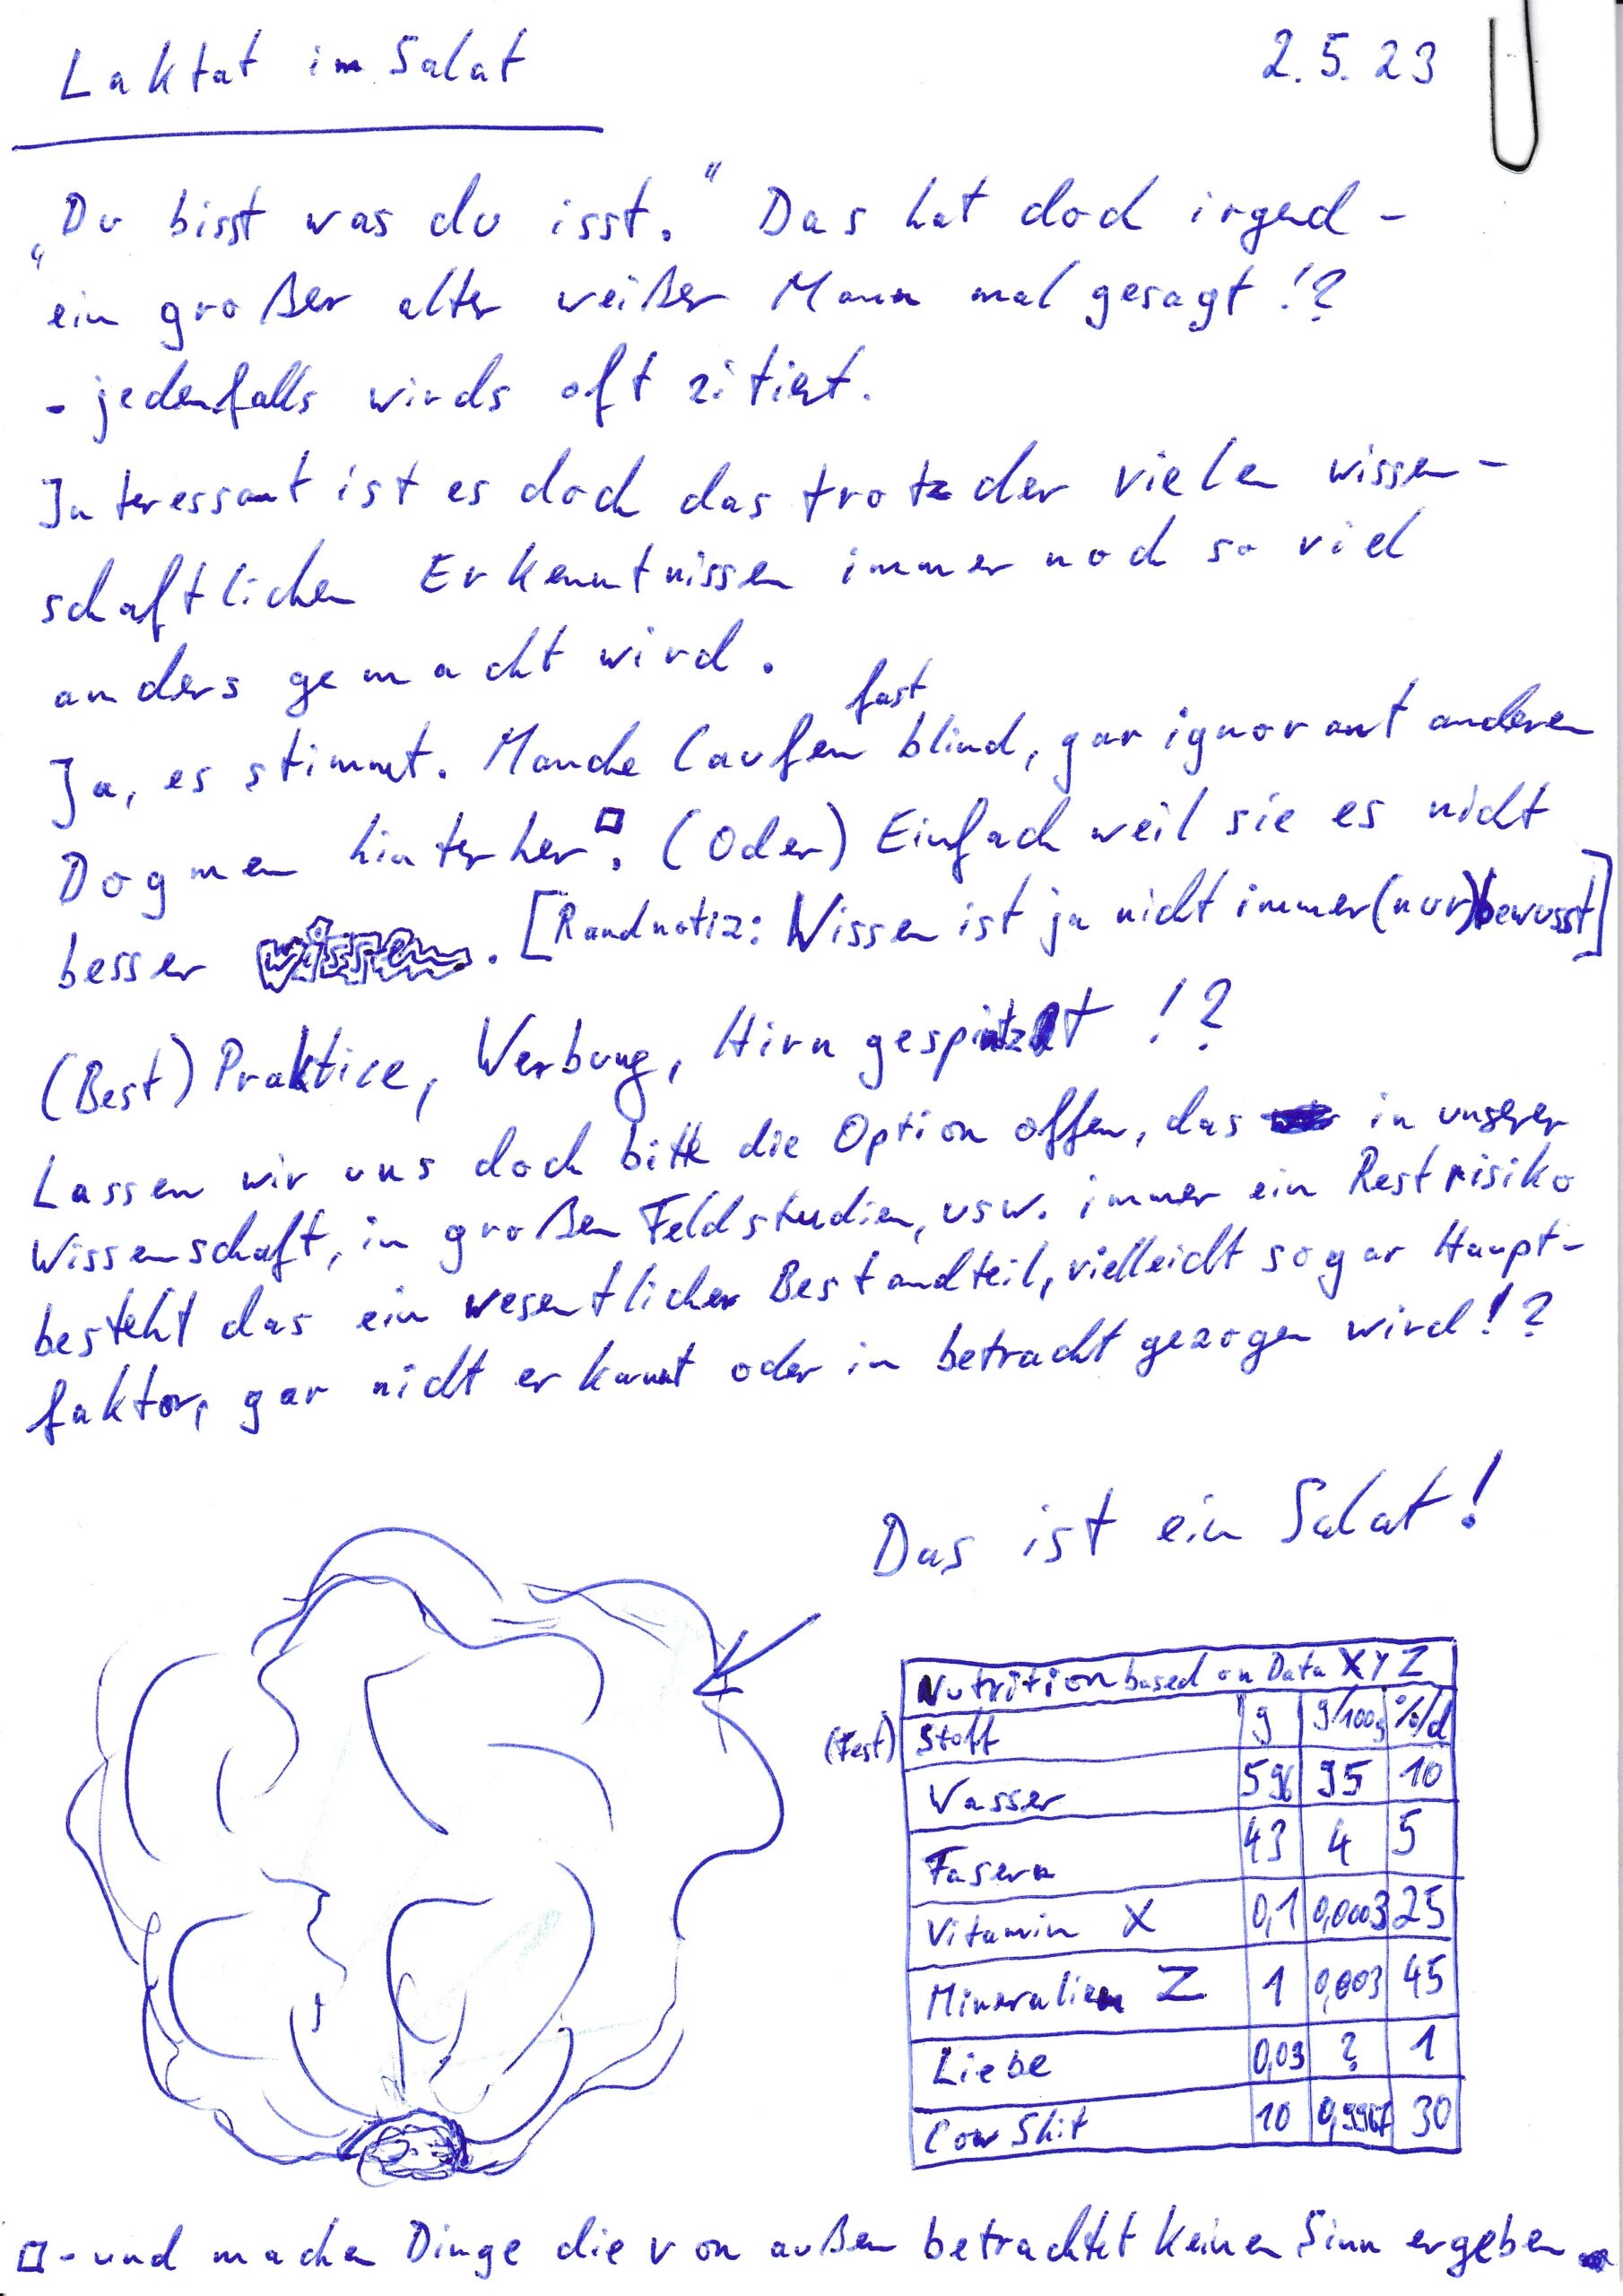 Laktat im Salat 2.5.23
„Du bisst was du isst." Das hat doch irgend-
ein großer alter weißer Mann mal gesagt!?
- jedenfalls wirds oft zitiert.
Interessant ist es doch das trotz der vielen wissen-
schaftlichen Erkenntnissen immer noch so viel
anders gemacht wird.
fast
Ja, es stimmt. Manche laufen blind, gar ignorant anderen
Dogmen hinterher□. (Oder) Einfach weil sie es nicht
besser wissen. [Randnotiz: Wissen ist ja nicht immer (nur) bewusst]
(Best) Praktice, Werbung, Hirn !?
Lassen wir uns doch bitte die Option offen, das in unserer
Wissenschaft, in großen Feldstudien, usw. immer ein Restrisiko
besteht das ein wesentlicher Bestandteil, vielleicht sogar Haupt-
faktor, gar nicht erkannt oder in betracht gezogen wird!?
Das ist ein Salat!
Nutrition based on Data XYZ
(Fest) Stoff g g/100g %/d
Wasser 596 95 10
Fasern 43 4 5
Vitamin X 0,1 0,0003 25
Mineralien Z 1 0,003 45
Liebe 0,03 ? 1
Cow Shit 10 30
□ - und machen Dinge die von außen betrachtet keinen Sinn ergeben